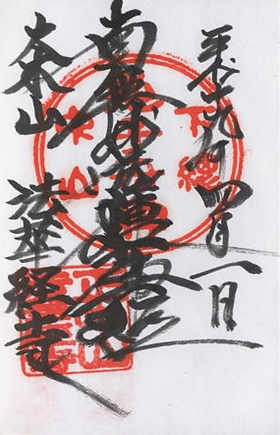 平成十九年四月一日
南無妙法蓮華経
大本山 法華経寺
下總